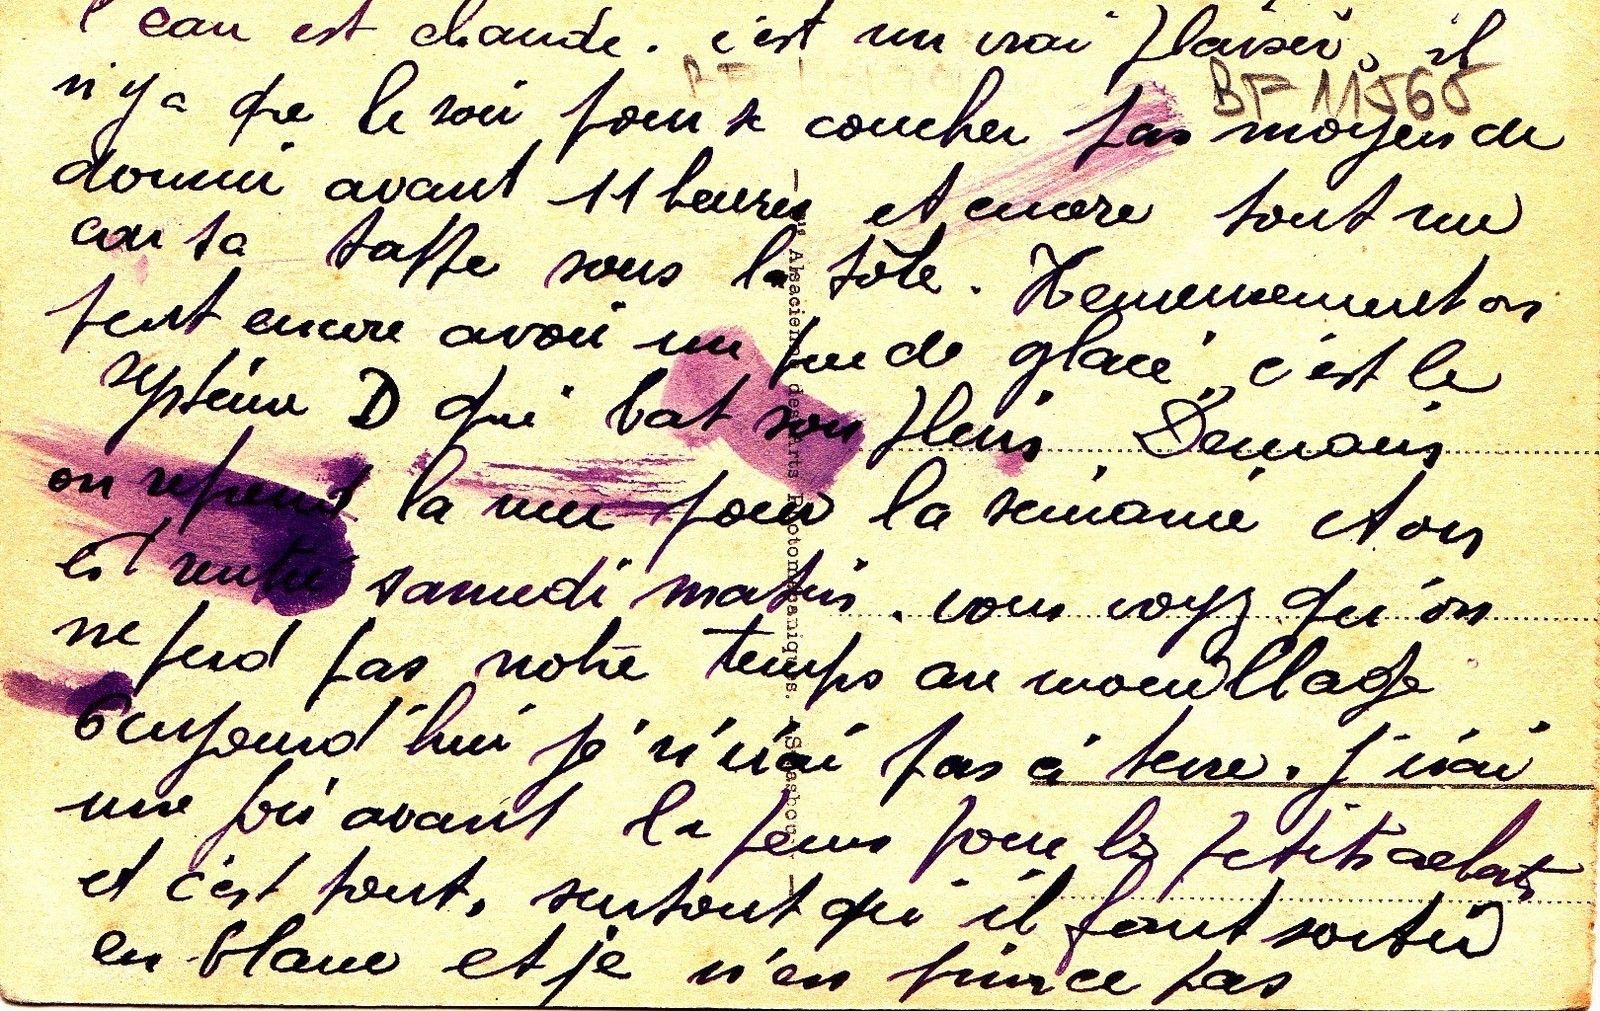 l'eau est chaude. c'est un vrai plaisir, il
BF 11565
n'y a que le soir pour se coucher pas moyen de
dormir avant 11 heures et encore tout nu
avec sa sous la tête. Heureusement on
peut encore avoir un peu de glace, c'est le
système D qui bat son plein. Demain
on reprend la mer pour la semaine et on
est rentré samedi matin. vous voyez qu'on
ne perd pas notre temps au mouillage
aujourd'hui je n'irai pas à terre. J'irai
une fois avant le pour les petits achats
et c'est tout, surtout qu'il faut sortir
en blanc et je n'en pince pas
Alsacienne des Arts Photomécaniques. - Strasbourg